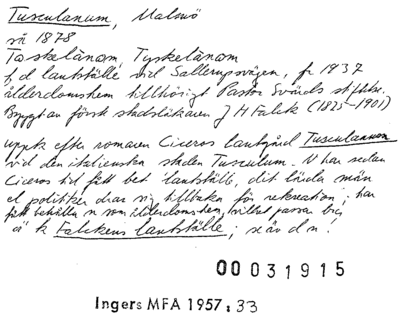 Tusculanum, Malmö
sä 1878
Taskelånom, Tyskelånom
f d lantställe vid Sallerupsvägen, fr 1937
ålderdomshem tillhörigt Pastor Svärds stiftelse.
Byggt av förste stadsläkaren J H Falck (1825-1901)
Uppk efter romaren Ciceros lantgård Tusculanum
vid den italienska staden Tusculum. N har sedan
Ciceros tid fått bet 'lantställe, dit lärda män
el politiker drar sig tillbaka för rekreation'; har
fått behållas n som ålderdomshem, vilket passar bra
ä k Falckens lantställe; se äv d n!
00031915
Ingers MFA 1957:33